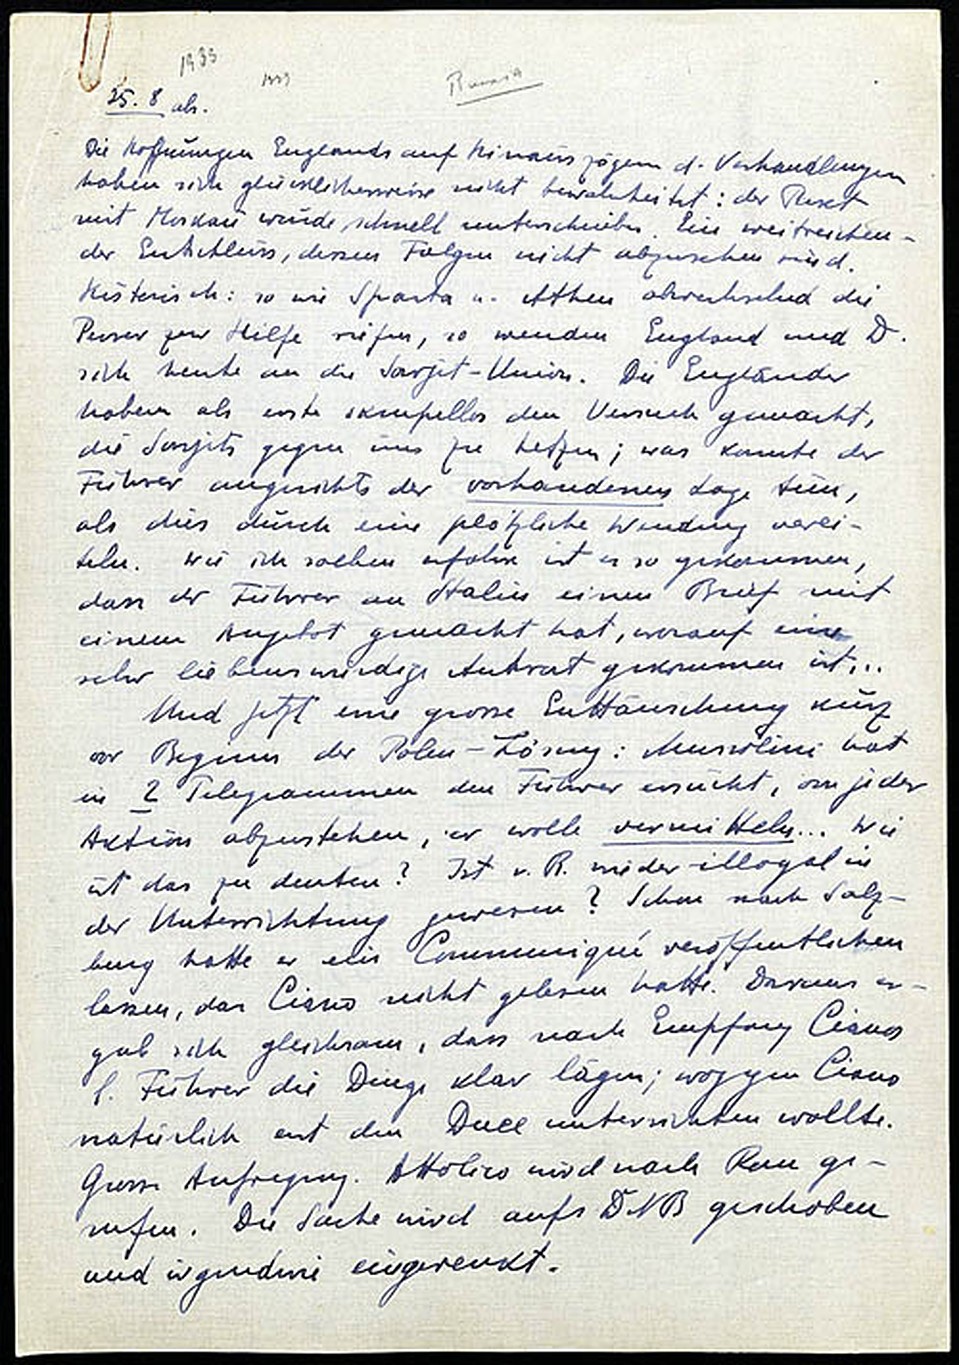 1939
1939
Russia
25. 8 ab.
Die Hoffnungen Englands auf Hinauszögern d. Verhandlungen
haben sich glücklicherweise nicht bewahrheitet: der Pakt
mit Moskau wurde schnell unterschrieben. Ein weitreichen-
der Entschluss, dessen Folgen nicht abzusehen sind.
Historisch: so wie Sparta u. Athen abwechselnd die
Perser zur Hilfe riefen, so wenden England und D.
sich heute an die Sovjet-Union. Die Engländer
haben als erste skrupellos den Versuch gemacht,
die Sovjets gegen uns zu hetzen; was konnte der
Führer angesichts der vorhandenen Lage tun,
als dies durch eine plötzliche Wendung verei-
teln. Wie ich soeben erfahre ist es so gekommen,
dass der Führer an Stalin einen Brief mit
einem Angebot gemacht hat, worauf eine
sehr liebenswürdige Antwort gekommen ist...
Und jetzt eine grosse Enttäuschung kurz
vor Beginn der Polen-Lösung: Mussolini hat
in 2 Telegrammen den Führer ersucht, von jeder
Aktion abzustehen, er wolle vermitteln... Wie
ist das zu deuten? Ist v. R. wieder illoyal in
der Unterrichtung gewesen? Schon nach Salz-
burg hatte er ein Communiqué veröffentlichen
lassen, das Ciano nicht gelesen hatte. Daraus er-
gab sich gleichsam, dass nach Empfang Cianos
b. Führer die Dinge klar lägen; wogegen Ciano
natürlich erst den Duce unterrichten wollte.
Grosse Aufregung. Attolico wird nach Rom ge-
rufen. Die Sache wird aufs DNB geschoben
und irgendwie eingerenkt.